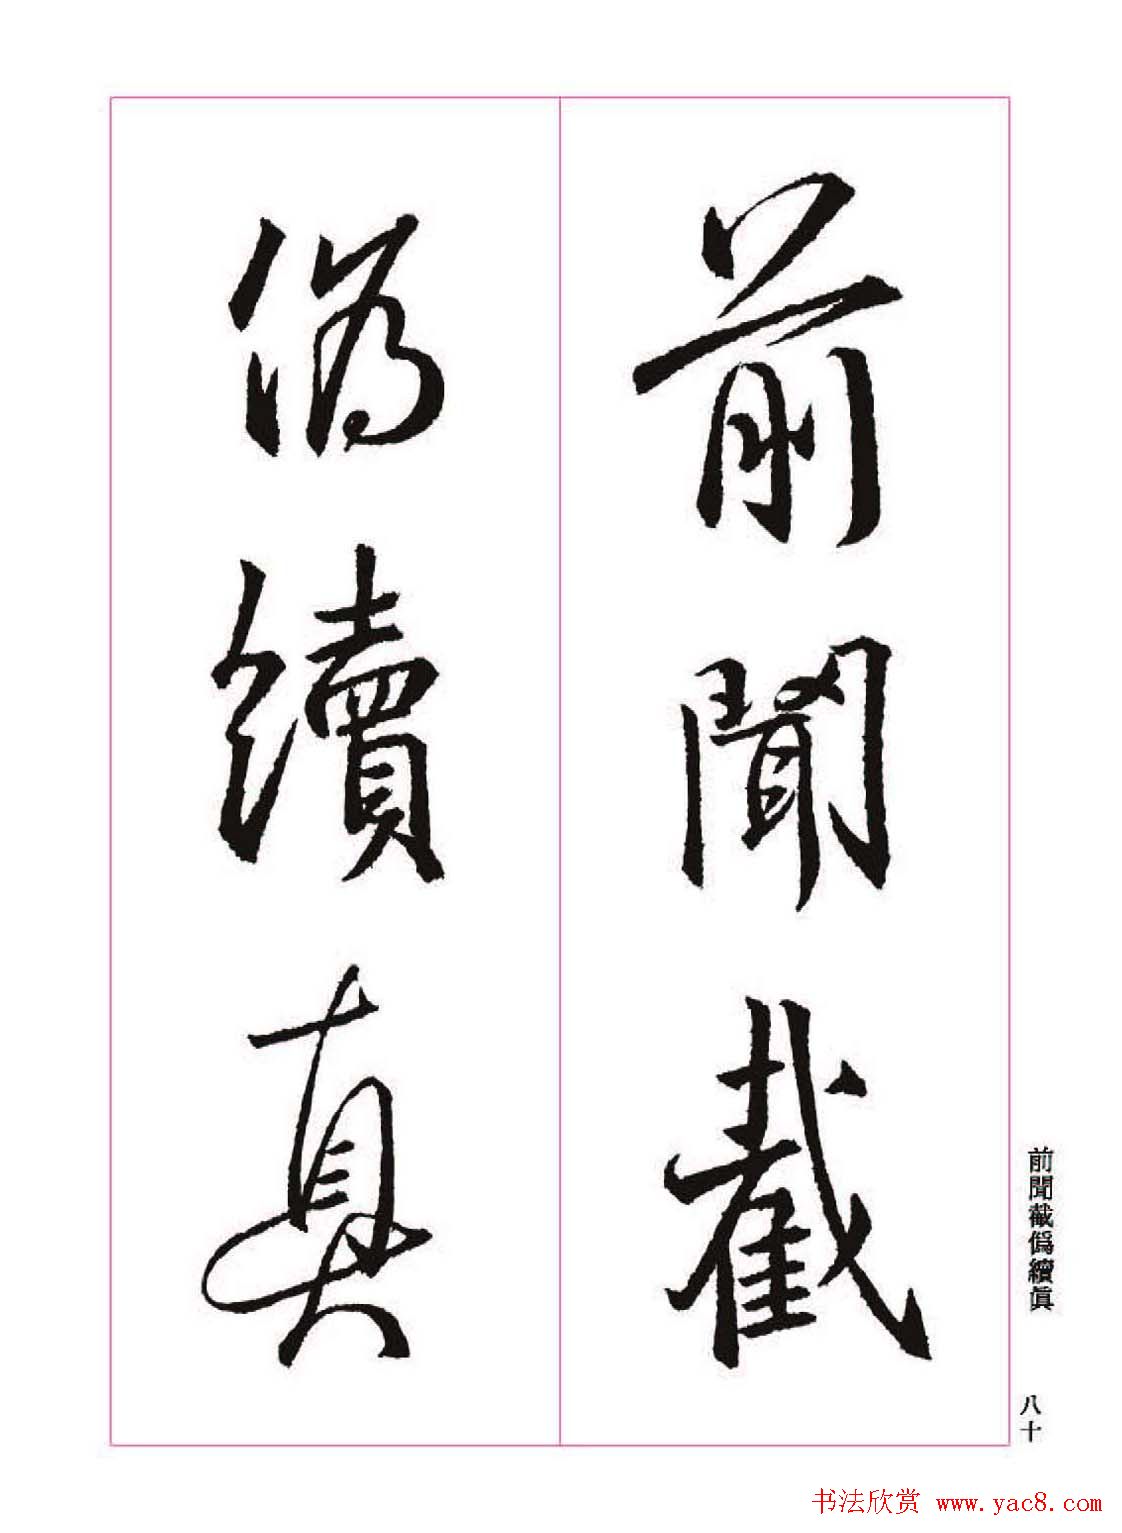 前聞截
偽續真
前聞截僞續眞
八十
书法欣赏 www.yac8.com